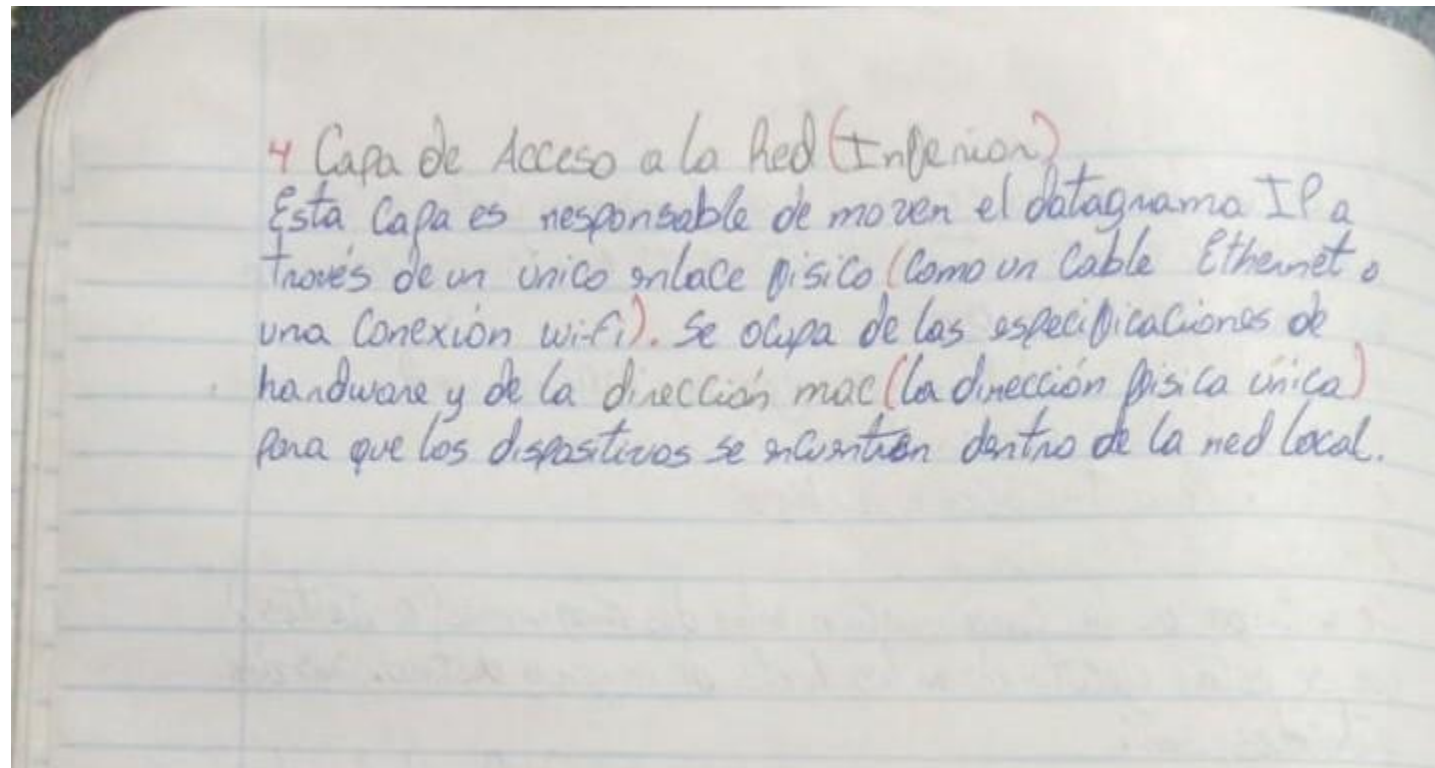 4 Capa de Acceso a la Red (Inferior)
Esta Capa es responsable de mover el datagrama IP a
través de un único enlace físico (Como un Cable Ethernet o
una Conexión wi-fi). Se ocupa de las especificaciones de
hardware y de la dirección mac (la dirección física única)
para que los dispositivos se encuentren dentro de la red local.